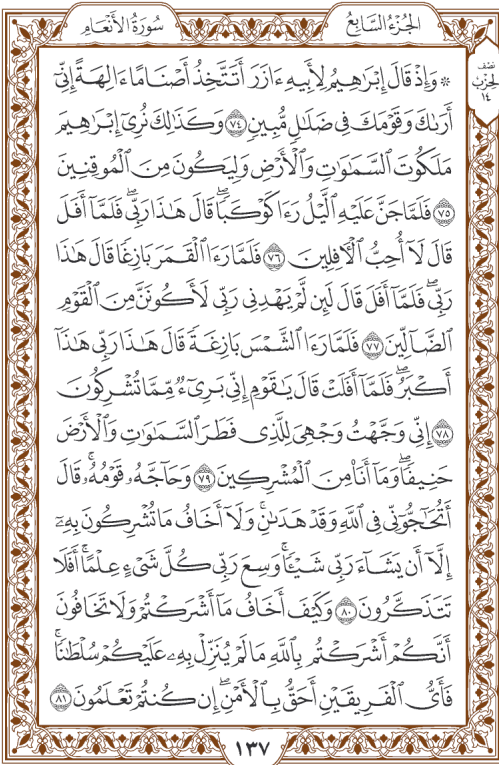 سُورَةُ الأَنْعَامِ
الجُزْءُ السَّابِعُ
نصف
الحزب
١٤
۞ وَإِذۡ قَالَ إِبۡرَٰهِيمُ لِأَبِيهِ ءَازَرَ أَتَتَّخِذُ أَصۡنَامًا ءَالِهَةً إِنِّيٓ
أَرَىٰكَ وَقَوۡمَكَ فِي ضَلَٰلٖ مُّبِينٖ ٧٤ وَكَذَٰلِكَ نُرِيٓ إِبۡرَٰهِيمَ
مَلَكُوتَ ٱلسَّمَٰوَٰتِ وَٱلۡأَرۡضِ وَلِيَكُونَ مِنَ ٱلۡمُوقِنِينَ
٧٥ فَلَمَّا جَنَّ عَلَيۡهِ ٱلَّيۡلُ رَءَا كَوۡكَبٗاۖ قَالَ هَٰذَا رَبِّيۖ فَلَمَّآ أَفَلَ
قَالَ لَآ أُحِبُّ ٱلۡأٓفِلِينَ ٧٦ فَلَمَّا رَءَا ٱلۡقَمَرَ بَازِغٗا قَالَ هَٰذَا
رَبِّيۖ فَلَمَّآ أَفَلَ قَالَ لَئِن لَّمۡ يَهۡدِنِي رَبِّي لَأَكُونَنَّ مِنَ ٱلۡقَوۡمِ
ٱلضَّآلِّينَ ٧٧ فَلَمَّا رَءَا ٱلشَّمۡسَ بَازِغَةٗ قَالَ هَٰذَا رَبِّي هَٰذَآ
أَكۡبَرُۖ فَلَمَّآ أَفَلَتۡ قَالَ يَٰقَوۡمِ إِنِّي بَرِيٓءٞ مِّمَّا تُشۡرِكُونَ
٧٨ إِنِّي وَجَّهۡتُ وَجۡهِيَ لِلَّذِي فَطَرَ ٱلسَّمَٰوَٰتِ وَٱلۡأَرۡضَ
حَنِيفٗاۖ وَمَآ أَنَا۠ مِنَ ٱلۡمُشۡرِكِينَ ٧٩ وَحَآجَّهُۥ قَوۡمُهُۥۚ قَالَ
أَتُحَٰٓجُّوٓنِّي فِي ٱللَّهِ وَقَدۡ هَدَىٰنِۚ وَلَآ أَخَافُ مَا تُشۡرِكُونَ بِهِۦٓ
إِلَّآ أَن يَشَآءَ رَبِّي شَيۡـٔٗاۚ وَسِعَ رَبِّي كُلَّ شَيۡءٍ عِلۡمًاۚ أَفَلَا
تَتَذَكَّرُونَ ٨٠ وَكَيۡفَ أَخَافُ مَآ أَشۡرَكۡتُمۡ وَلَا تَخَافُونَ
أَنَّكُمۡ أَشۡرَكۡتُم بِٱللَّهِ مَا لَمۡ يُنَزِّلۡ بِهِۦ عَلَيۡكُمۡ سُلۡطَٰنٗاۚ
فَأَيُّ ٱلۡفَرِيقَيۡنِ أَحَقُّ بِٱلۡأَمۡنِۖ إِن كُنتُمۡ تَعۡلَمُونَ ٨١
١٣٧